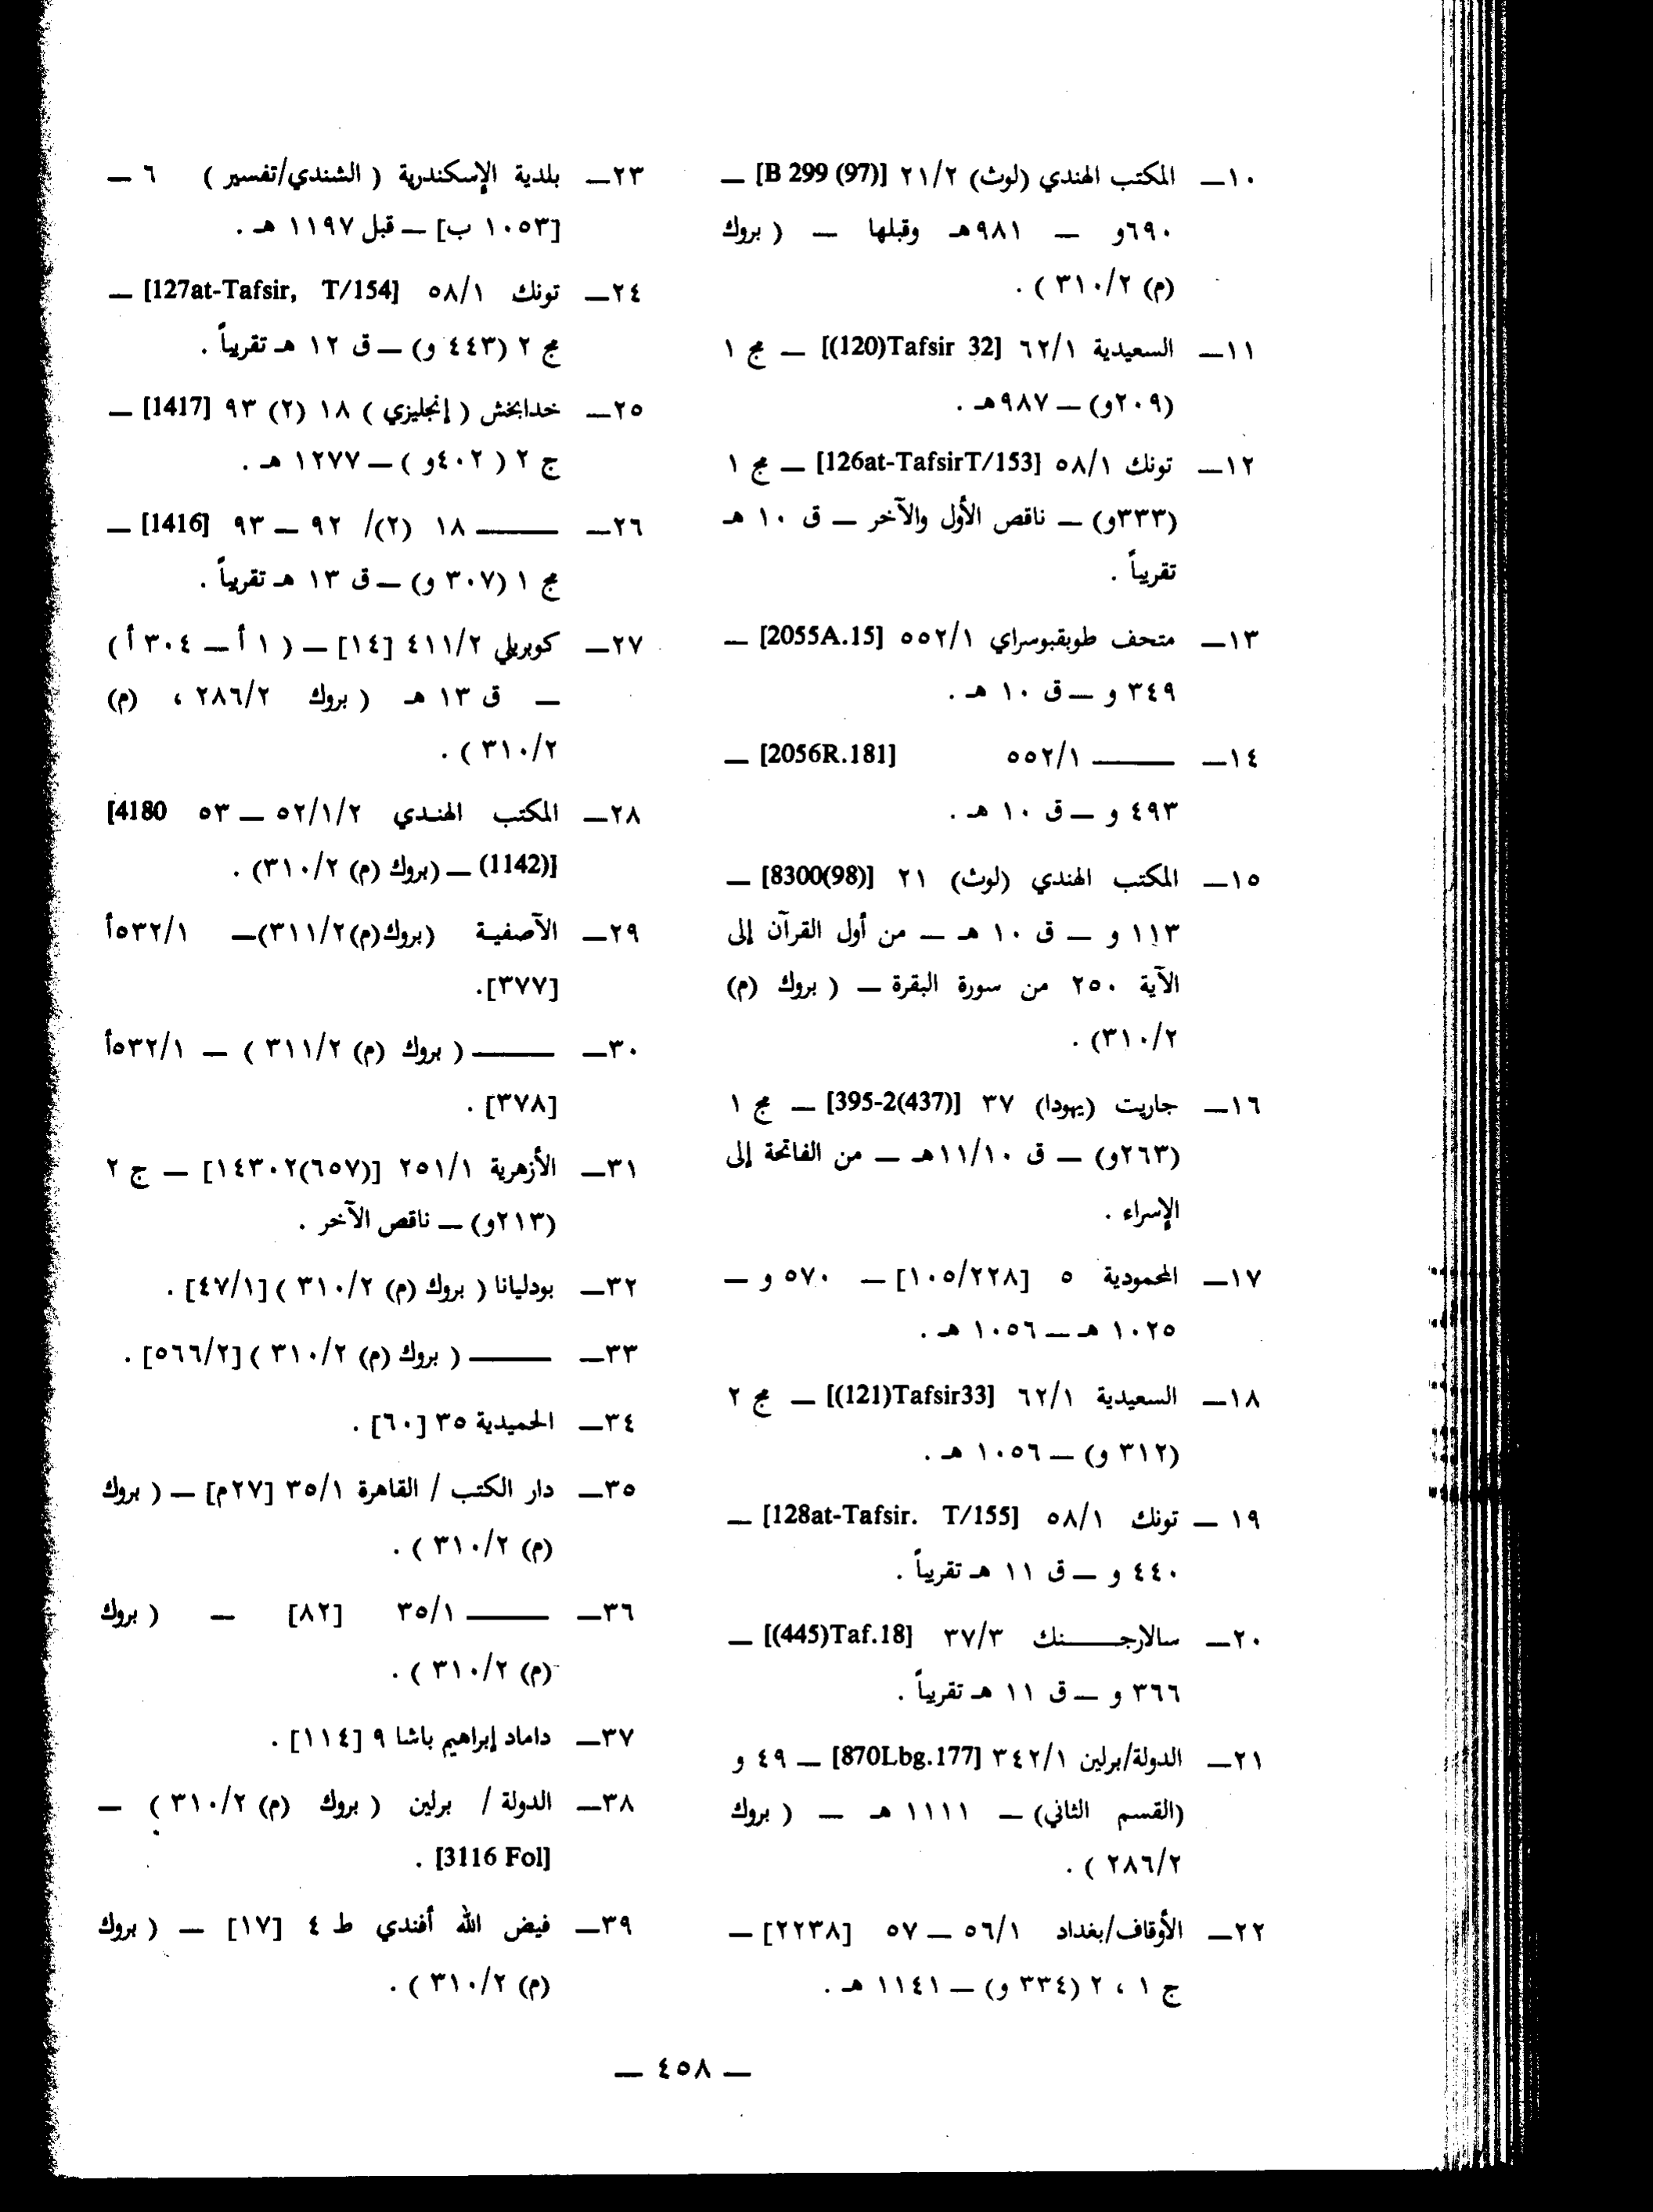 ١٠ـ المكتب الهندي (لوث) ٢١/٢ [B 299 (97)] ـ
٦٩٠و ـ ٩٨١هـ وقبلها ـ ( بروك
(م) ٣١٠/٢ ) .
١١ـ السعيدية ٦٢/١ [(120)Tafsir 32] ـ مج ١
(٢٠٩و) ـ ٩٨٧هـ .
١٢ـ تونك ٥٨/١ [126at-TafsirT/153] ـ مج ١
(٣٣٣و) ـ ناقص الأول والآخر ـ ق ١٠ هـ
تقريباً .
١٣ـ متحف طوبقبوسراي ٥٥٢/١ [2055A.15] ـ
٣٤٩ و ـ ق ١٠ هـ .
١٤ـ ــــــ ٥٥٢/١ [2056R.181] ـ
٤٩٣ و ـ ق ١٠ هـ .
١٥ـ المكتب الهندي (لوث) ٢١ [8300(98)] ـ
١١٣ و ـ ق ١٠ هـ ـ من أول القرآن إلى
الآية ٢٥٠ من سورة البقرة ـ ( بروك (م)
٣١٠/٢) .
١٦ـ جاريت (يهودا) ٣٧ [395-2(437)] ـ مج ١
(٢٦٣و) ـ ق ١١/١٠هـ ـ من الفاتحة إلى
الإسراء .
١٧ـ المحمودية ٥ [١٠٥/٢٢٨] ـ ٥٧٠ و ـ
١٠٢٥ هـ ـ ١٠٥٦ هـ .
١٨ـ السعيدية ٦٢/١ [(121)Tafsir33] ـ مج ٢
(٣١٢ و) ـ ١٠٥٦ هـ .
١٩ ـ تونك ٥٨/١ [128at-Tafsir. T/155] ـ
٤٤٠ و ـ ق ١١ هـ تقريباً .
٢٠ـ سالارجــــنك ٣٧/٣ [(445)Taf.18] ـ
٣٦٦ و ـ ق ١١ هـ تقريباً .
٢١ـ الدولة/برلين ٣٤٢/١ [870Lbg.177] ـ ٤٩ و
(القسم الثاني) ـ ١١١١ هـ ـ ( بروك
٢٨٦/٢ ) .
٢٢ـ الأوقاف/بغداد ٥٦/١ ـ ٥٧ [٢٢٣٨] ـ
ج ١ ، ٢ (٣٣٤ و) ـ ١١٤١ هـ .
٢٣ـ بلدية الإسكندرية ( الشندي/تفسير ) ٦ ـ
[١٠٥٣ ب] ـ قبل ١١٩٧ هـ .
٢٤ـ تونك ٥٨/١ [127at-Tafsir, T/154] ـ
مج ٢ (٤٤٣ و) ـ ق ١٢ هـ تقريباً .
٢٥ـ خدابخش ( إنجليزي ) ١٨ (٢) ٩٣ [1417] ـ
ج ٢ ( ٤٠٢و ) ـ ١٢٧٧ هـ .
٢٦ـ ــــــ ١٨ (٢)/ ٩٢ ـ ٩٣ [1416] ـ
مج ١ (٣٠٧ و) ـ ق ١٣ هـ تقريباً .
٢٧ـ كوبريلي ٤١١/٢ [١٤] ـ ( ١ أ ـ ٣٠٤ أ )
ـ ق ١٣ هـ ( بروك ٢٨٦/٢ ، (م)
٣١٠/٢ ) .
٢٨ـ المكتب الهندي ٥٢/١/٢ ـ ٥٣ [4180
(1142)] ـ (بروك (م) ٣١٠/٢) .
٢٩ـ الآصفية (بروك(م)٣١١/٢)ـ ٥٣٢/١أ
[٣٧٧].
٣٠ـ ــــــ ( بروك (م) ٣١١/٢ ) ـ ٥٣٢/١أ
[٣٧٨] .
٣١ـ الأزهرية ٢٥١/١ [(٦٥٧)١٤٣٠٢] ـ ج ٢
(٢١٣و) ـ ناقص الآخر .
٣٢ـ بودليانا ( بروك (م) ٣١٠/٢ ) [٤٧/١] .
٣٣ـ ــــــ ( بروك (م) ٣١٠/٢ ) [٥٦٦/٢] .
٣٤ـ الحميدية ٣٥ [٦٠] .
٣٥ـ دار الكتب / القاهرة ٣٥/١ [٢٧م] ـ ( بروك
(م) ٣١٠/٢ ) .
٣٦ـ ــــــ ٣٥/١ [٨٢] ـ ( بروك
(م) ٣١٠/٢ ) .
٣٧ـ داماد إبراهيم باشا ٩ [١١٤] .
٣٨ـ الدولة / برلين ( بروك (م) ٣١٠/٢ ) ـ
[3116 Fol] .
٣٩ـ فيض الله أفندي ط ٤ [١٧] ـ ( بروك
(م) ٣١٠/٢ ) .
ـ ٤٥٨ ـ